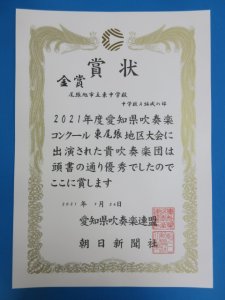 賞状
金賞
尾張旭市立東中学校
中学校A編成の部
2021年度愛知県吹奏楽
コンクール東尾張地区大会に
出演された貴吹奏楽団は
頭書の通り優秀でしたので
ここに賞します
2021年 月 日
愛知県吹奏楽連盟
朝日新聞社